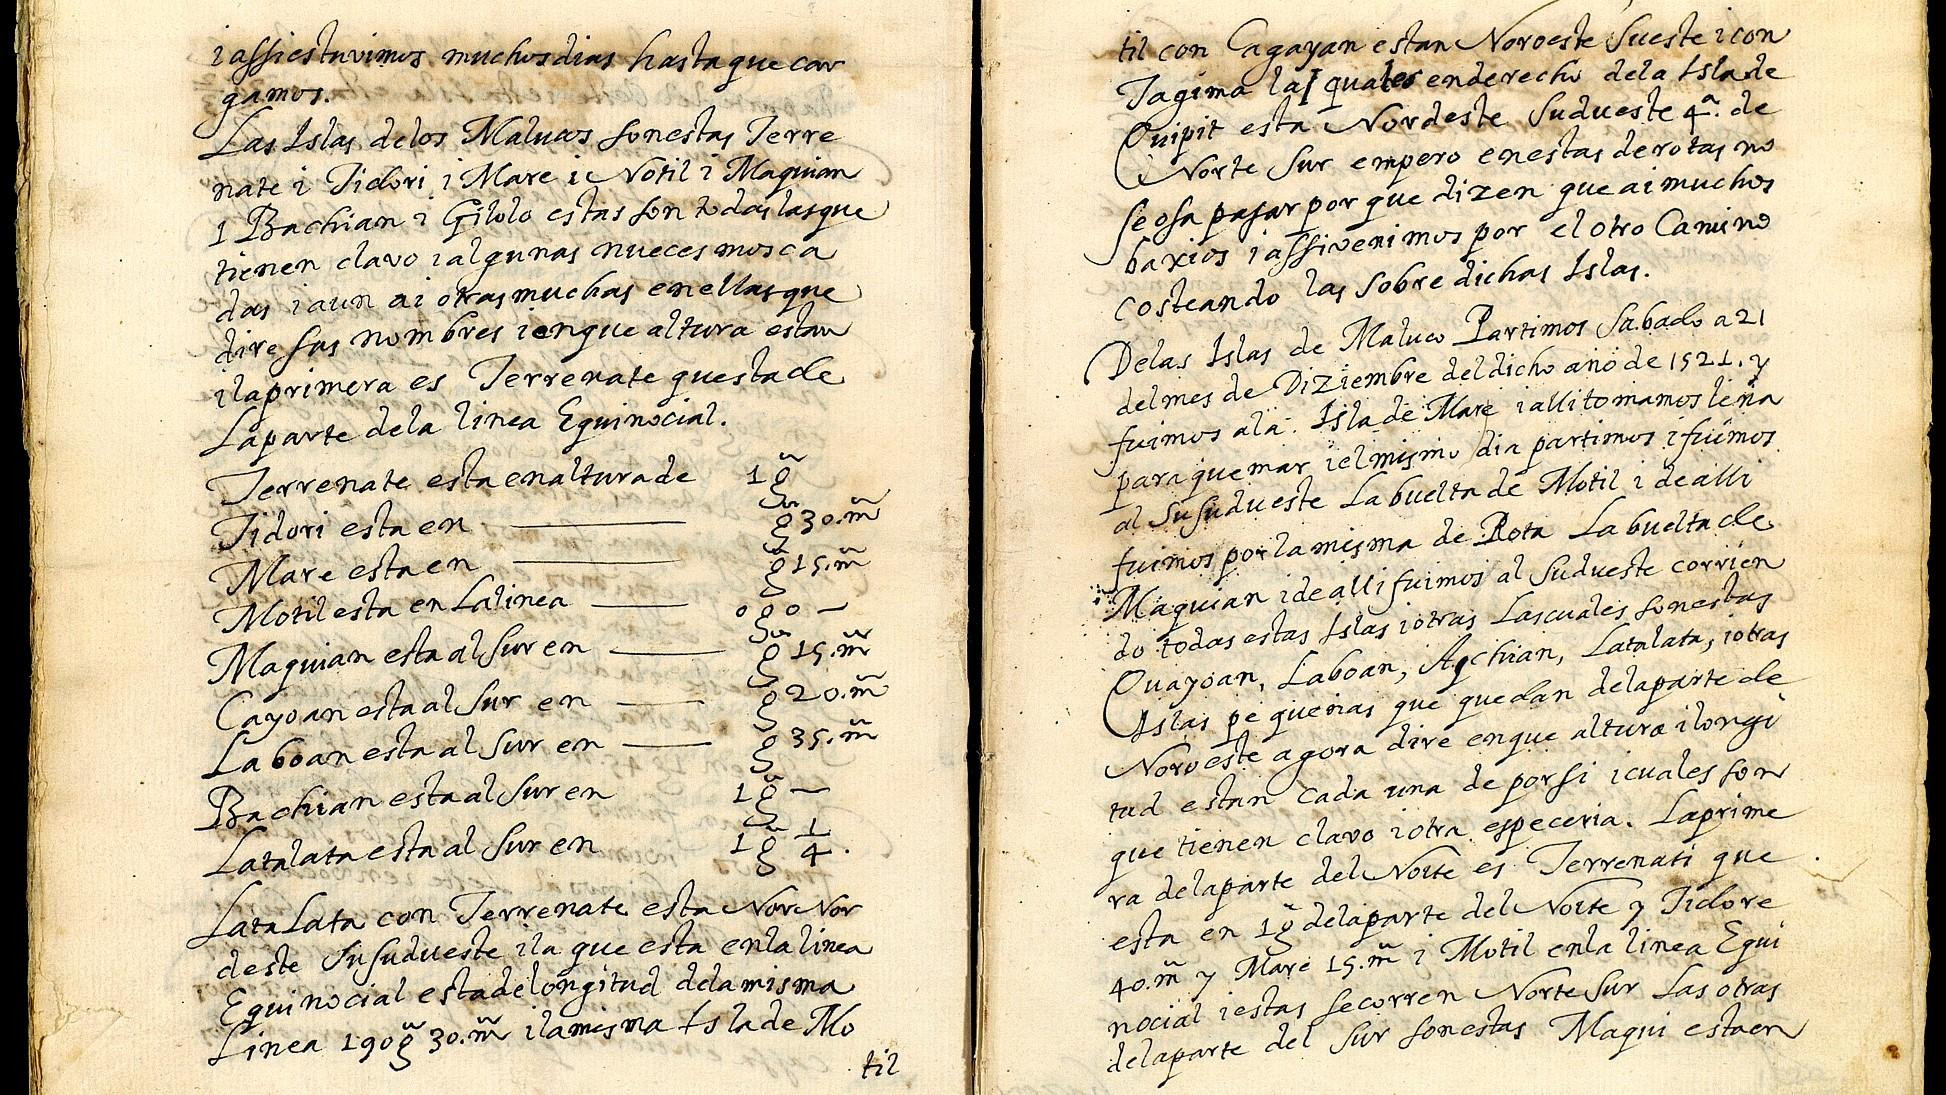 i assi estuvimos muchos dias hasta que car
gamos.
Las Islas delos Malucos son estas Terre
nate i Tidori i Mare i Notil i Maquian
i Bachian i Gilolo estas son todas las que
tienen clavo i algunas nueces mosca
das i aun ai otras muchas en ellas que
dire sus nombres i en que altura estan
i la primera es Terrenate questa de
La parte dela linea Equinocial.
Terrenate esta en altura de 1 g̃
Tidori esta en — g̃ 30. m̃
Mare esta en — g̃ 15. m̃
Motil esta en La linea — o g o —
Maquian esta al Sur en — g̃ 15. m̃
Cayoan esta al Sur en — g 20. m̃
Laboan esta al Sur en — g 35. m̃
Bachian esta al Sur en 1 g̃ —
Latalata esta al Sur en 1 g̃ 1/4.
LataLata con Terrenate esta Nor Nor
deste Susudueste i la que esta en la linea
Equinocial esta de longitud dela misma
Linea 190 g̃ 30. m̃ i la misma Isla de Mo
til
til con Cagayan estan Noroeste Sueste i con
Tagima las quales en derecho dela Isla de
Quipit esta Nordeste Sudueste 4ª. de
Norte Sur empero en estas derotas no
se osa pasar por que dizen que ai muchos
baxios i assi venimos por el otro Camino
costeando las sobre dichas Islas.
Delas Islas de Maluco Partimos Sabado a 21
del mes de Diziembre del dicho año de 1521. y
fuimos a la. Isla de Mare i alli tomamos leña
para quemar i el mismo dia partimos i fuimos
al Susudueste La buelta de Motil i de alli
fuimos por la misma de Rota La buelta de
Maquian i de alli fuimos al Sudueste corrien
do todas estas Islas i otras Las cuales son estas
Quayoan, Laboan, Aychian, Latalata, i otras
Islas pequeñas que quedan dela parte de
Noroeste agora dire en que altura i longi
tud estan cada una de por si i cuales son
que tienen clavo i otra especeria. La prime
ra dela parte del Norte es Terrenati que
esta en 1 g̃ dela parte del Norte y Tidore
40. m̃ y Mare 15. m̃ i Motil en la linea Equi
nocial i estas se corren Norte Sur Las otras
dela parte del Sur son estas Maqui esta en